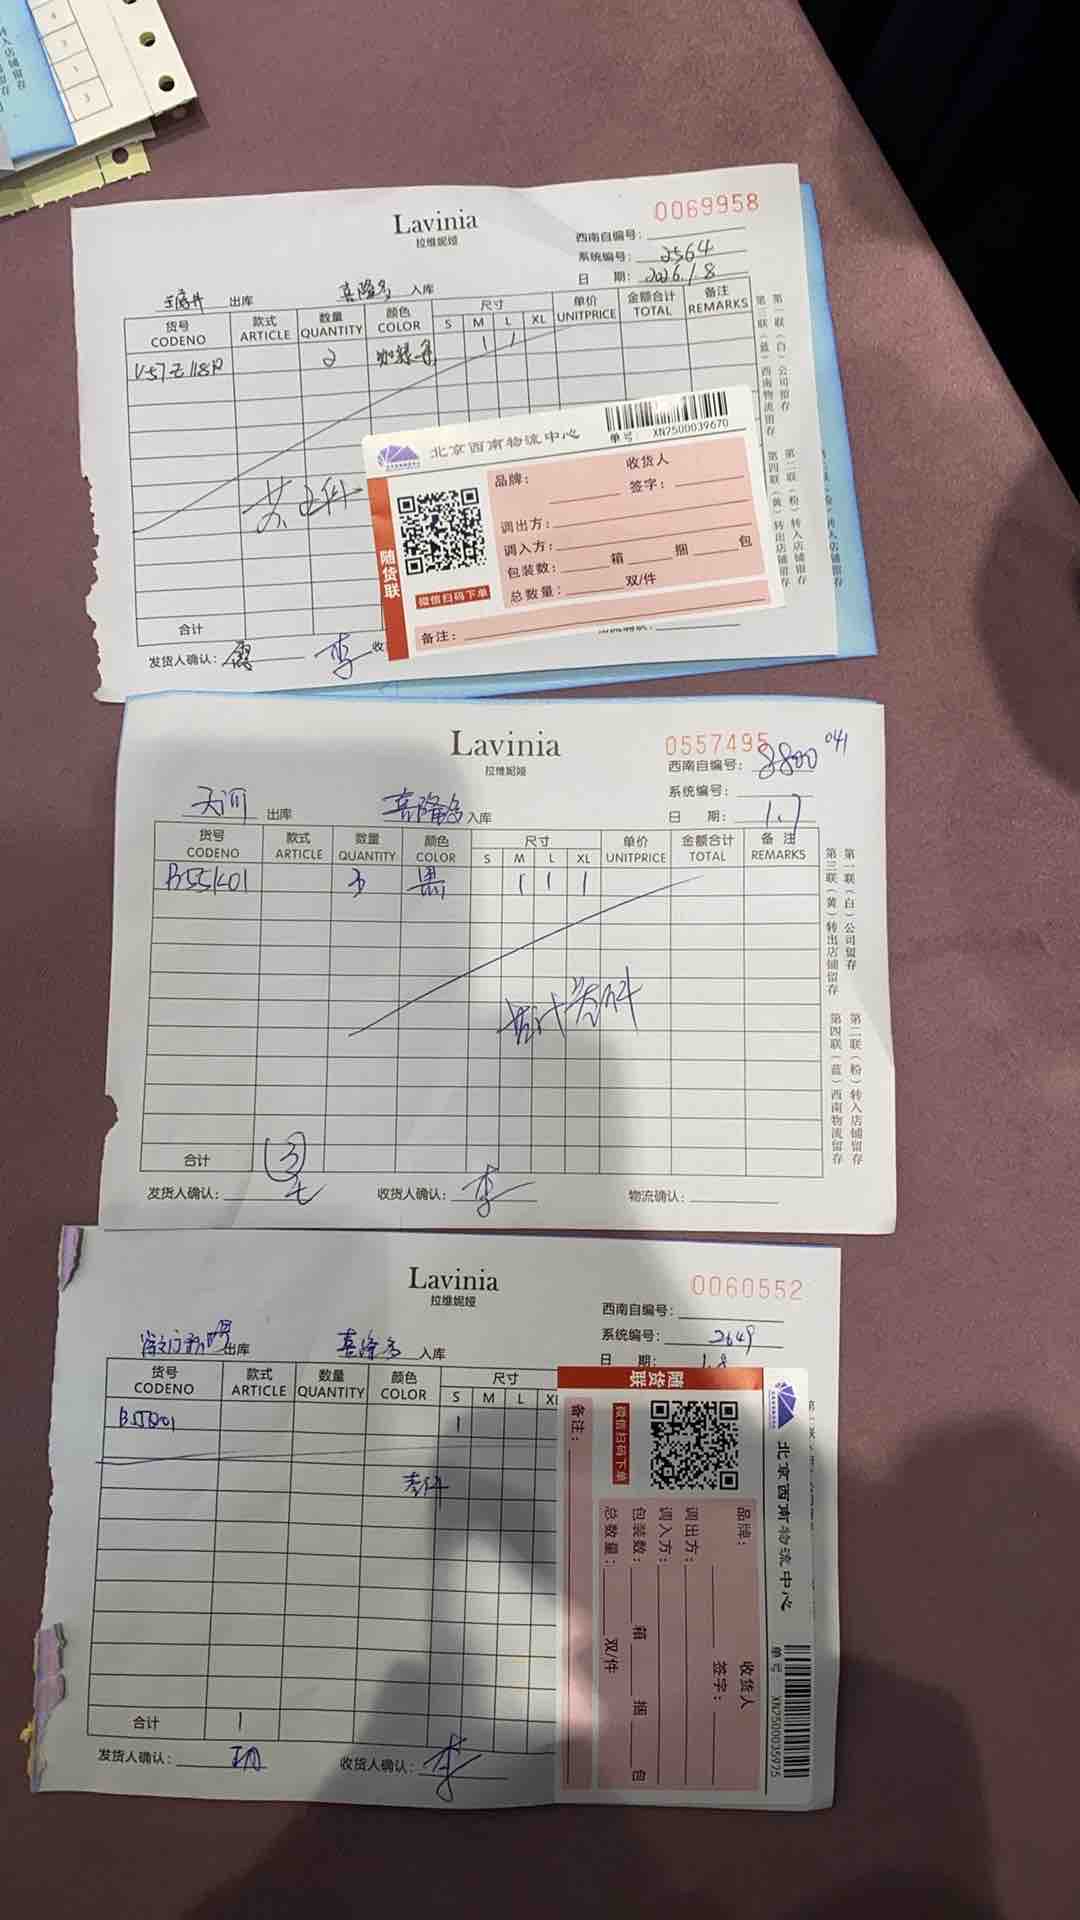 4
3
5
3
Lavinia
拉维妮娅
0069958
西南自编号:
系统编号: 2564
日 期: 2026.1.8
王府井 出库 喜隆多 入库
货号 款式 数量 颜色 尺寸 单价 金额合计 备注
CODENO ARTICLE QUANTITY COLOR S M L XL UNITPRICE TOTAL REMARKS
V57Z118R 2 1 1
共 件
合计
发货人确认: 霞 李 收
第一联（白）公司留存
第三联（蓝）西南物流留存
第二联（粉）转入店铺留存
第四联（黄）转出店铺留存
北京西南物流中心
单号: XN2500039670
随货联
微信扫码下单
品牌:
收货人
签字:
调出方:
调入方:
包装数: 箱 捆 包
总数量: 双/件
备注:
Lavinia
拉维妮娅
0557495
西南自编号: 8800041
系统编号:
日 期: 1.7
天河 出库 喜隆多 入库
货号 款式 数量 颜色 尺寸 单价 金额合计 备注
CODENO ARTICLE QUANTITY COLOR S M L XL UNITPRICE TOTAL REMARKS
B55K01 3 黑 1 1 1
合计 3
发货人确认: 收货人确认: 李 物流确认:
第一联（白）公司留存
第三联（黄）转出店铺留存
第二联（粉）转入店铺留存
第四联（蓝）西南物流留存
Lavinia
拉维妮娅
0060552
西南自编号:
系统编号: 2649
日 期: 1.8
出库 喜隆多 入库
货号 款式 数量 颜色 尺寸
CODENO ARTICLE QUANTITY COLOR S M L XL
1
合计 1
发货人确认: 收货人确认: 李
北京西南物流中心
单号: XN2500035975
随货联
微信扫码下单
品牌:
收货人
签字:
调出方:
调入方:
包装数: 箱 捆 包
总数量: 双/件
备注: